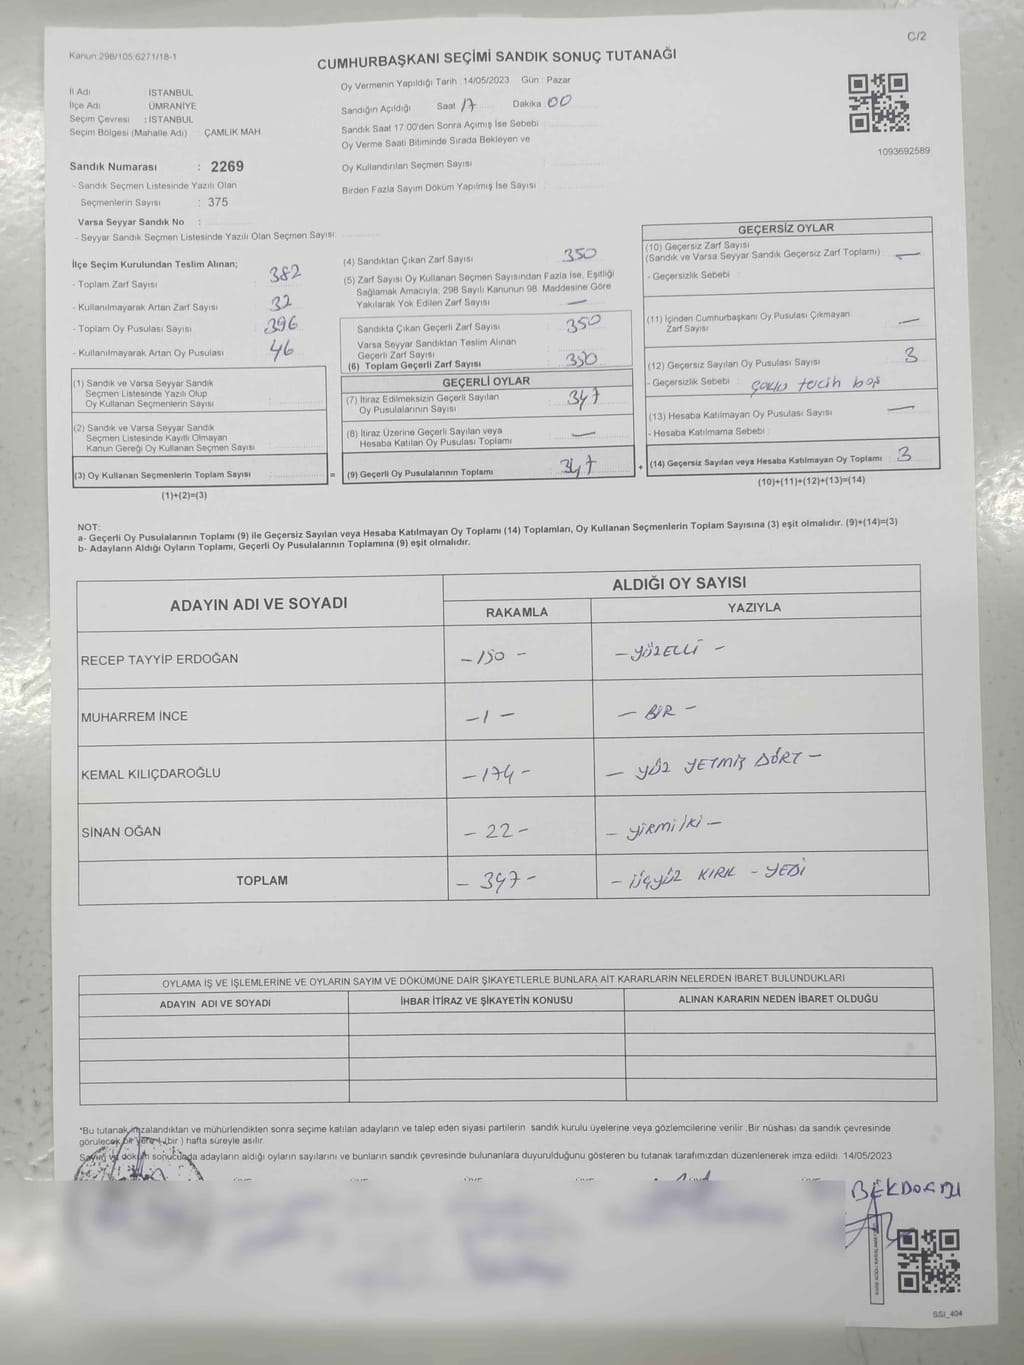 C/2
Kanun:298/105;6271/18-1
CUMHURBAŞKANI SEÇİMİ SANDIK SONUÇ TUTANAĞI
Oy Vermenin Yapıldığı Tarih :14/05/2023 Gün : Pazar
İl Adı : İSTANBUL
İlçe Adı : ÜMRANİYE
Seçim Çevresi : İSTANBUL
Seçim Bölgesi (Mahalle Adı) : ÇAMLIK MAH.
Sandığın Açıldığı Saat 17 Dakika 00
Sandık Saat 17:00'den Sonra Açımış İse Sebebi
Oy Verme Saati Bitiminde Sırada Bekleyen ve
Oy Kullandırılan Seçmen Sayısı
Birden Fazla Sayım Döküm Yapılmış İse Sayısı
1093692589
Sandık Numarası : 2269
- Sandık Seçmen Listesinde Yazılı Olan
Seçmenlerin Sayısı : 375
Varsa Seyyar Sandık No :
- Seyyar Sandık Seçmen Listesinde Yazılı Olan Seçmen Sayısı:
İlçe Seçim Kurulundan Teslim Alınan;
- Toplam Zarf Sayısı : 382
- Kullanılmayarak Artan Zarf Sayısı : 32
- Toplam Oy Pusulası Sayısı : 396
- Kullanılmayarak Artan Oy Pusulası : 46
(1) Sandık ve Varsa Seyyar Sandık
Seçmen Listesinde Yazılı Olup
Oy Kullanan Seçmenlerin Sayısı
(2) Sandık ve Varsa Seyyar Sandık
Seçmen Listesinde Kayıtlı Olmayan
Kanun Gereği Oy Kullanan Seçmen Sayısı
(3) Oy Kullanan Seçmenlerin Toplam Sayısı =
(1)+(2)=(3)
(4) Sandıktan Çıkan Zarf Sayısı : 350
(5) Zarf Sayısı Oy Kullanan Seçmen Sayısından Fazla İse, Eşitliği
Sağlamak Amacıyla, 298 Sayılı Kanunun 98. Maddesine Göre
Yakılarak Yok Edilen Zarf Sayısı : —
Sandıkta Çıkan Geçerli Zarf Sayısı : 350
Varsa Seyyar Sandıktan Teslim Alınan
Geçerli Zarf Sayısı
(6) Toplam Geçerli Zarf Sayısı : 350
GEÇERLİ OYLAR
(7) İtiraz Edilmeksizin Geçerli Sayılan
Oy Pusulalarının Sayısı : 347
(8) İtiraz Üzerine Geçerli Sayılan veya
Hesaba Katılan Oy Pusulası Toplamı : —
(9) Geçerli Oy Pusulalarının Toplamı : 347 +
GEÇERSİZ OYLAR
(10) Geçersiz Zarf Sayısı
(Sandık ve Varsa Seyyar Sandık Geçersiz Zarf Toplamı) : —
- Geçersizlik Sebebi :
(11) İçinden Cumhurbaşkanı Oy Pusulası Çıkmayan
Zarf Sayısı : —
(12) Geçersiz Sayılan Oy Pusulası Sayısı : 3
- Geçersizlik Sebebi : tercih boş
(13) Hesaba Katılmayan Oy Pusulası Sayısı : —
- Hesaba Katılmama Sebebi :
(14) Geçersiz Sayılan veya Hesaba Katılmayan Oy Toplamı : 3
(10)+(11)+(12)+(13)=(14)
NOT:
a- Geçerli Oy Pusulalarının Toplamı (9) ile Geçersiz Sayılan veya Hesaba Katılmayan Oy Toplamı (14) Toplamları, Oy Kullanan Seçmenlerin Toplam Sayısına (3) eşit olmalıdır. (9)+(14)=(3)
b- Adayların Aldığı Oyların Toplamı, Geçerli Oy Pusulalarının Toplamına (9) eşit olmalıdır.
ADAYIN ADI VE SOYADI
ALDIĞI OY SAYISI
RAKAMLA YAZIYLA
RECEP TAYYİP ERDOĞAN -150- -YÜZELLİ-
MUHARREM İNCE -1- -BİR-
KEMAL KILIÇDAROĞLU -174- -YÜZ YETMİŞ DÖRT-
SİNAN OĞAN -22- -YİRMİ İKİ-
TOPLAM -347- -ÜÇYÜZ KIRK-YEDİ
OYLAMA İŞ VE İŞLEMLERİNE VE OYLARIN SAYIM VE DÖKÜMÜNE DAİR ŞİKAYETLERLE BUNLARA AİT KARARLARIN NELERDEN İBARET BULUNDUKLARI
ADAYIN ADI VE SOYADI İHBAR İTİRAZ VE ŞİKAYETİN KONUSU ALINAN KARARIN NEDEN İBARET OLDUĞU
*Bu tutanak imzalandıktan ve mühürlendikten sonra seçime katılan adayların ve talep eden siyasi partilerin sandık kurulu üyelerine veya gözlemcilerine verilir .Bir nüshası da sandık çevresinde
görülecek bir yere 1 (bir ) hafta süreyle asılır.
Sayım ve döküm sonucunda adayların aldığı oyların sayılarını ve bunların sandık çevresinde bulunanlara duyurulduğunu gösteren bu tutanak tarafımızdan düzenlenerek imza edildi. 14/05/2023
SSI_404